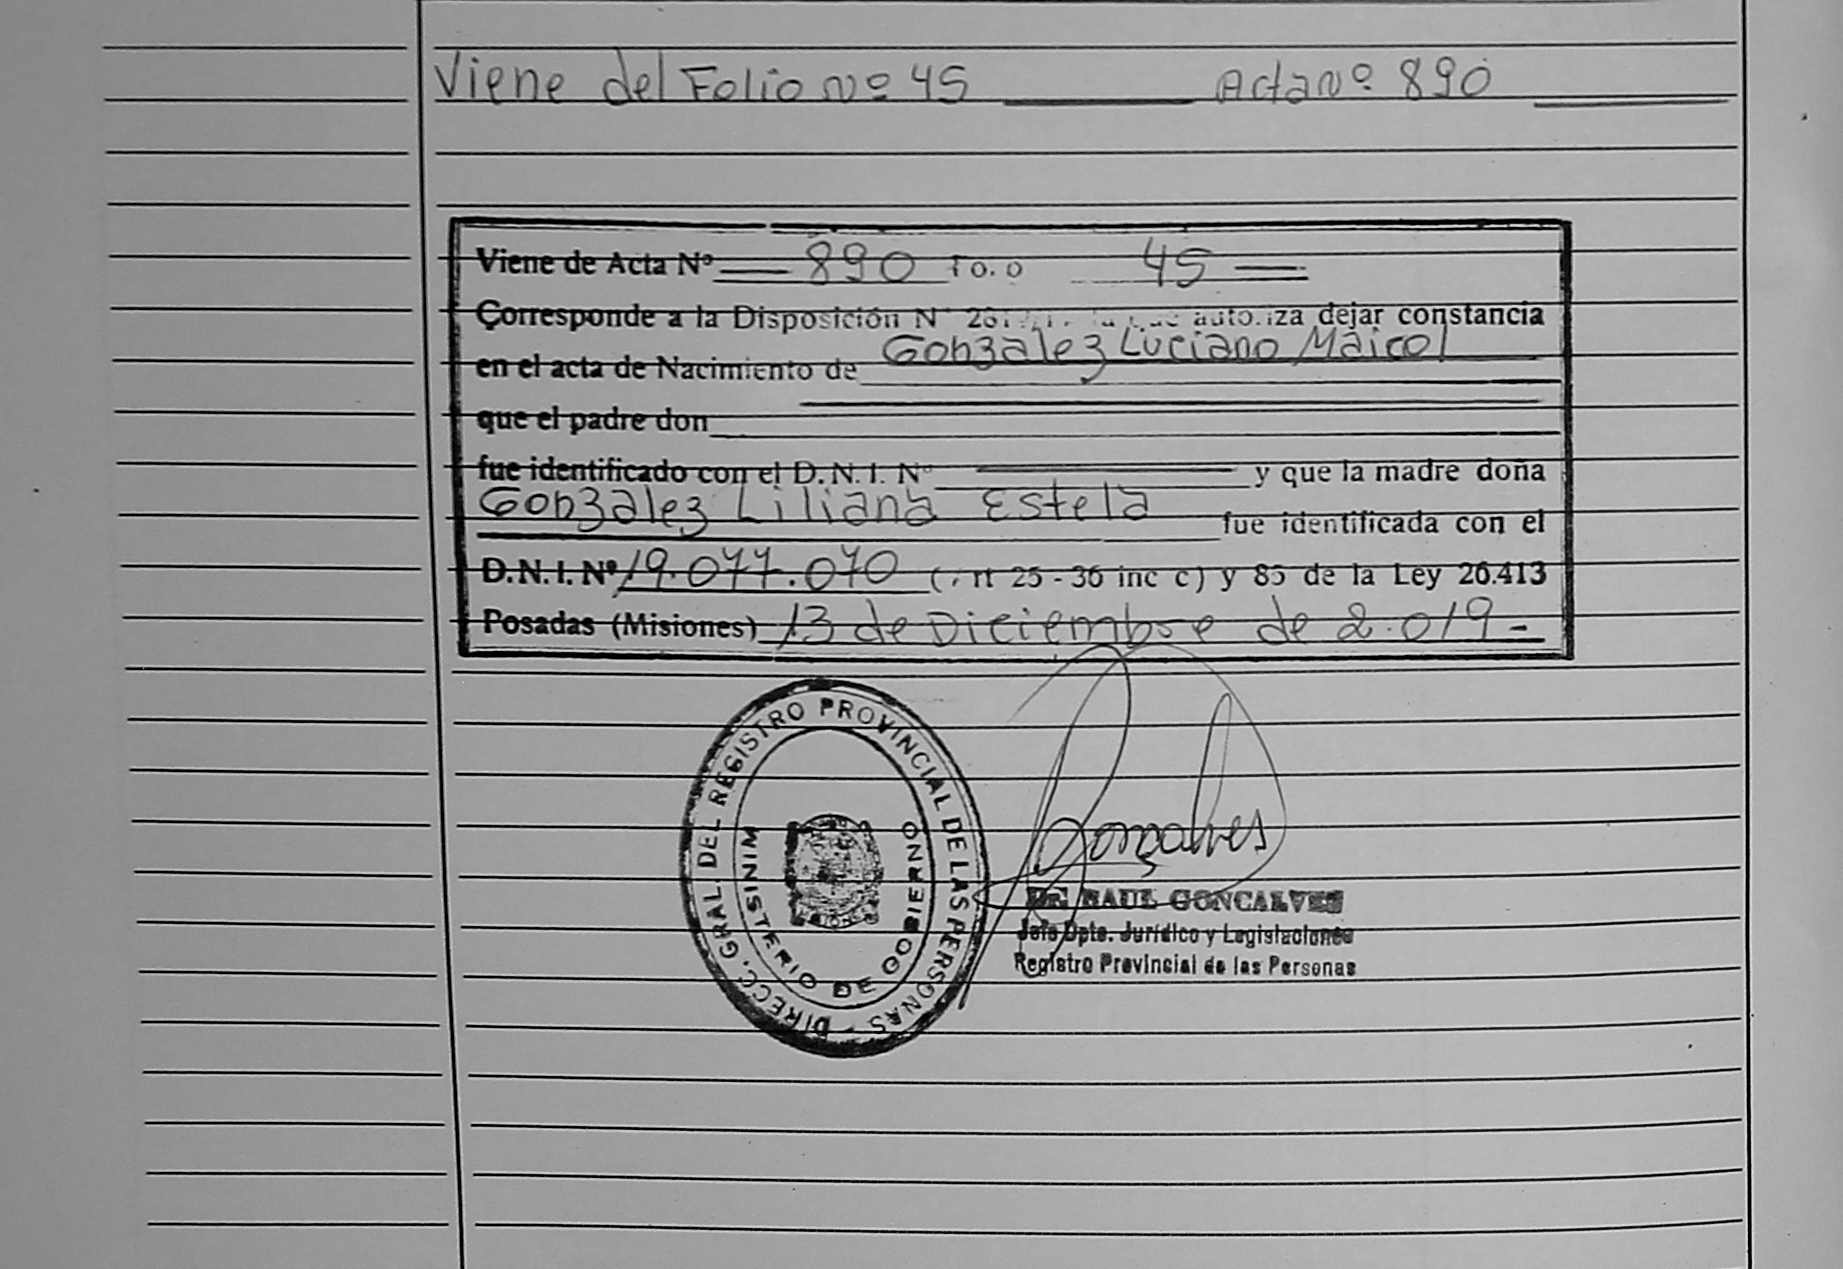 Viene del Folio Nº 45 Acta Nº 890
Viene de Acta Nº 890 45
Corresponde a la Disposición Nº autoriza dejar constancia
en el acta de Nacimiento de Gonzalez Luciano Maicol
que el padre don
fue identificado con el D.N.I. Nº y que la madre doña
Gonzalez Liliana Estela fue identificada con el
D.N.I. Nº 19.077.070 ( 25 - 36 inc c) y 85 de la Ley 26.413
Posadas (Misiones) 13 de Diciembre de 2.019.-
DIRECC. GRAL. DEL REGISTRO PROVINCIAL DE LAS PERSONAS -
MINISTERIO DE GOBIERNO
Goncalves
Dr. RAUL GONCALVES
Jefe Dpto. Jurídico y Legislaciones
Registro Provincial de las Personas